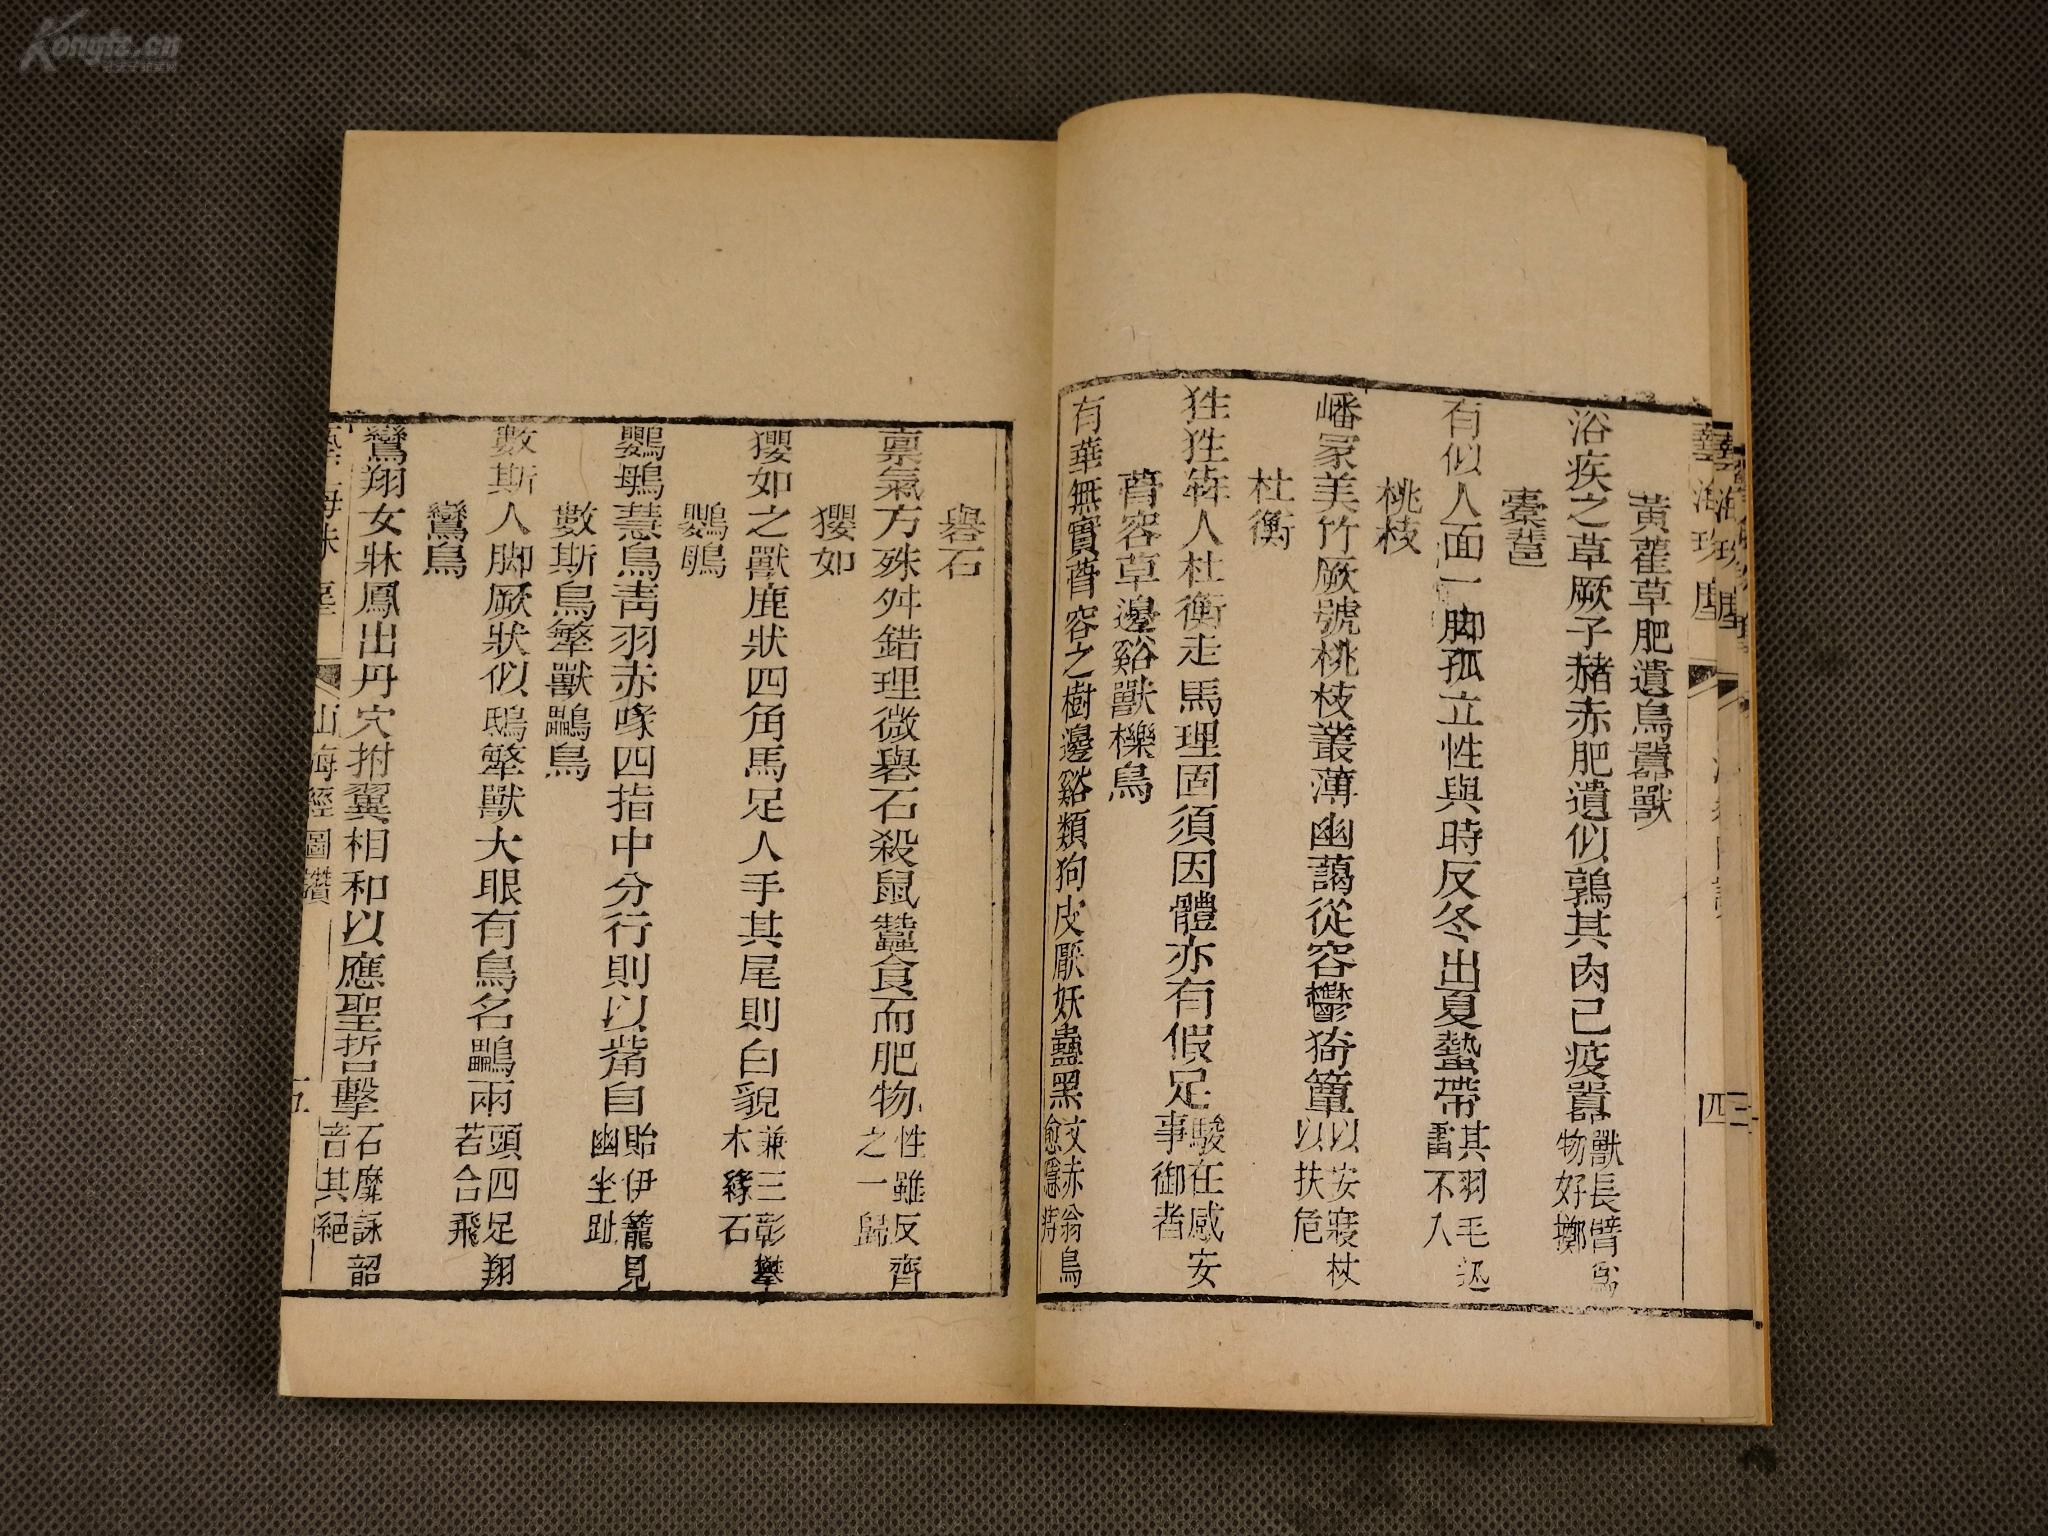 黃雚草肥遺鳥嚻獸
浴疾之草厥子赭赤肥遺似鶉其肉已疫嚻獸長臂爲物好擲
橐𩇯
有似人面一脚孤立性與時反冬出夏蟄帶其羽毛迅雷不入
桃枝
嶓冢美竹厥號桃枝叢薄幽藹從容鬱猗簟以安寢杖以扶危
杜衡
狌狌犇人杜衡走馬理固須因體亦有假足駿在感安事御者
蓇容草邊谿獸櫟鳥
有華無實蓇容之樹邊谿類狗皮厭妖蠱黑文赤翁鳥愈隱痔
藝海珠塵
四
礜石
稟氣方殊舛錯理微礜石殺鼠蠶食而肥物性雖反齊之一歸
玃如
玃如之獸鹿狀四角馬足人手其尾則白貌兼三彰攀木緣石
鸚䳇
鸚䳇慧鳥靑羽赤喙四指中分行則以觜自貽伊籠見幽坐趾
數斯鳥𢐗獸鸓鳥
數斯人脚厥狀似鴟𢐗獸大眼有鳥名鸓兩頭四足翔若合飛
鸞鳥
鸞翔女牀鳳出丹穴拊翼相和以應聖哲擊石靡詠韶音其絕
山海經圖讚
五
Kongfz.cn